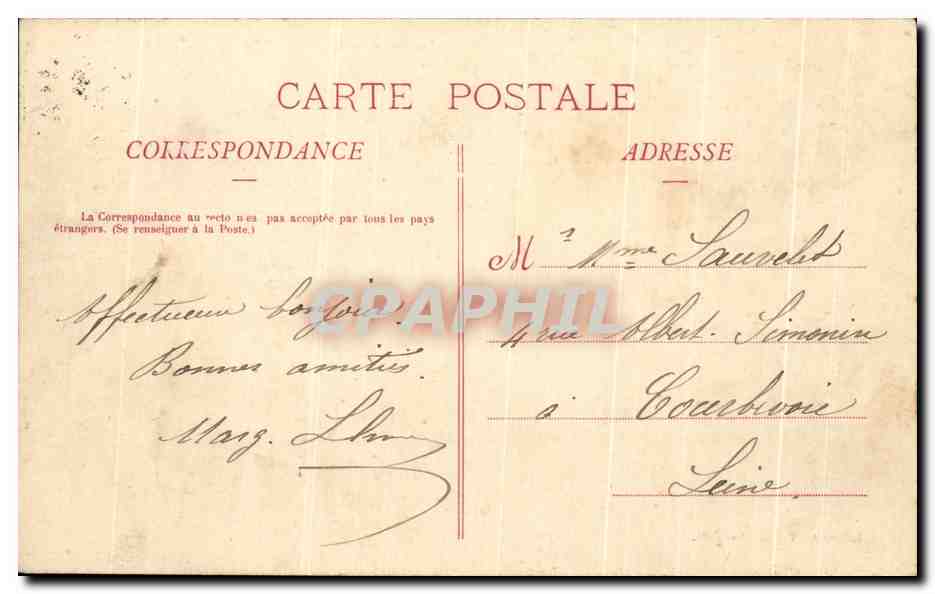 CARTE POSTALE
CORRESPONDANCE
La Correspondance au recto n'es pas acceptée par tous les pays
étrangers. (Se renseigner à la Poste.)
Affectueux bonjour.
Bonnes amitiés.
Marg.
ADRESSE
M
Mme Sauvelet
4 rue Albert. Simonin
à Courbevoie
Seine.
CPAPHIL